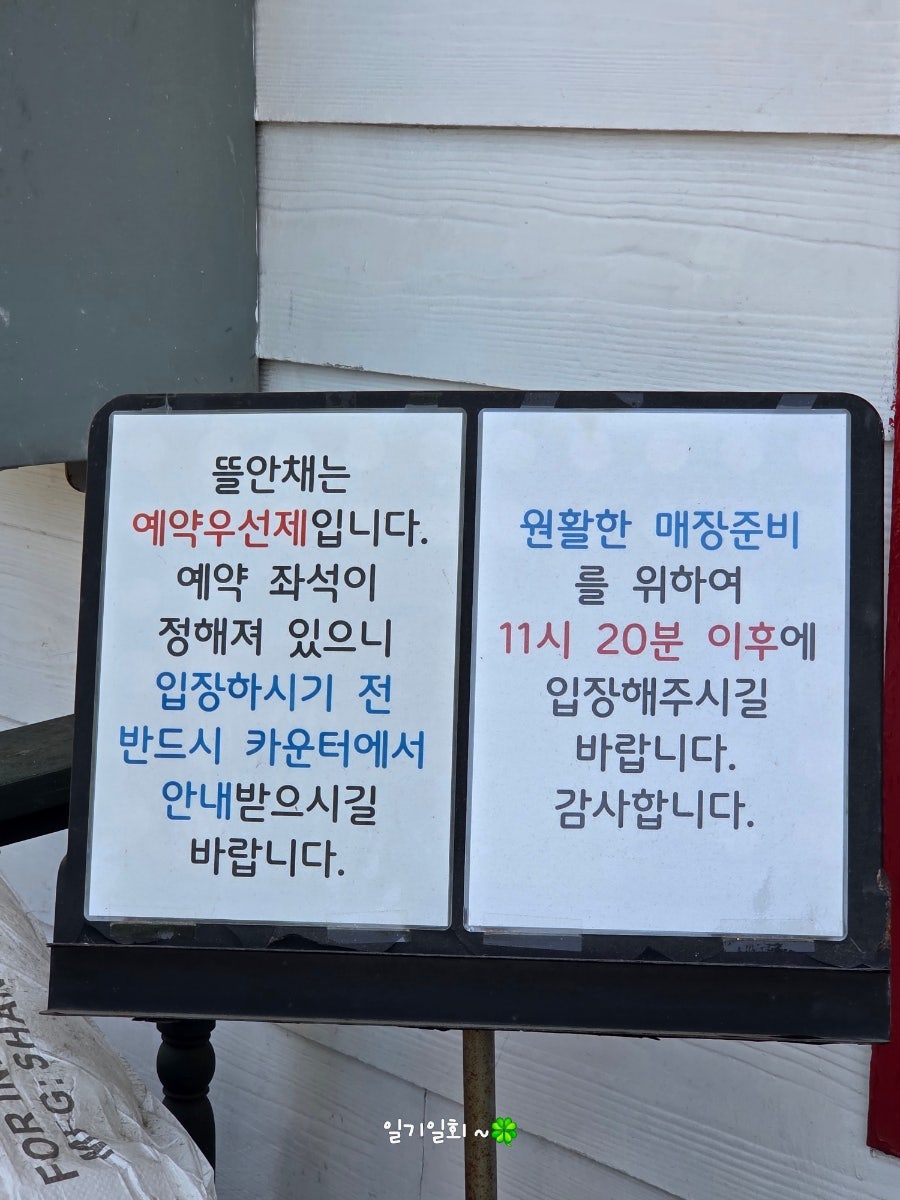 뜰안채는
예약우선제입니다.
예약 좌석이
정해져 있으니
입장하시기 전
반드시 카운터에서
안내받으시길
바랍니다.
원활한 매장준비
를 위하여
11시 20분 이후에
입장해주시길
바랍니다.
감사합니다.
FOR IN
MFG: SHAN
일기일회 ~🍀